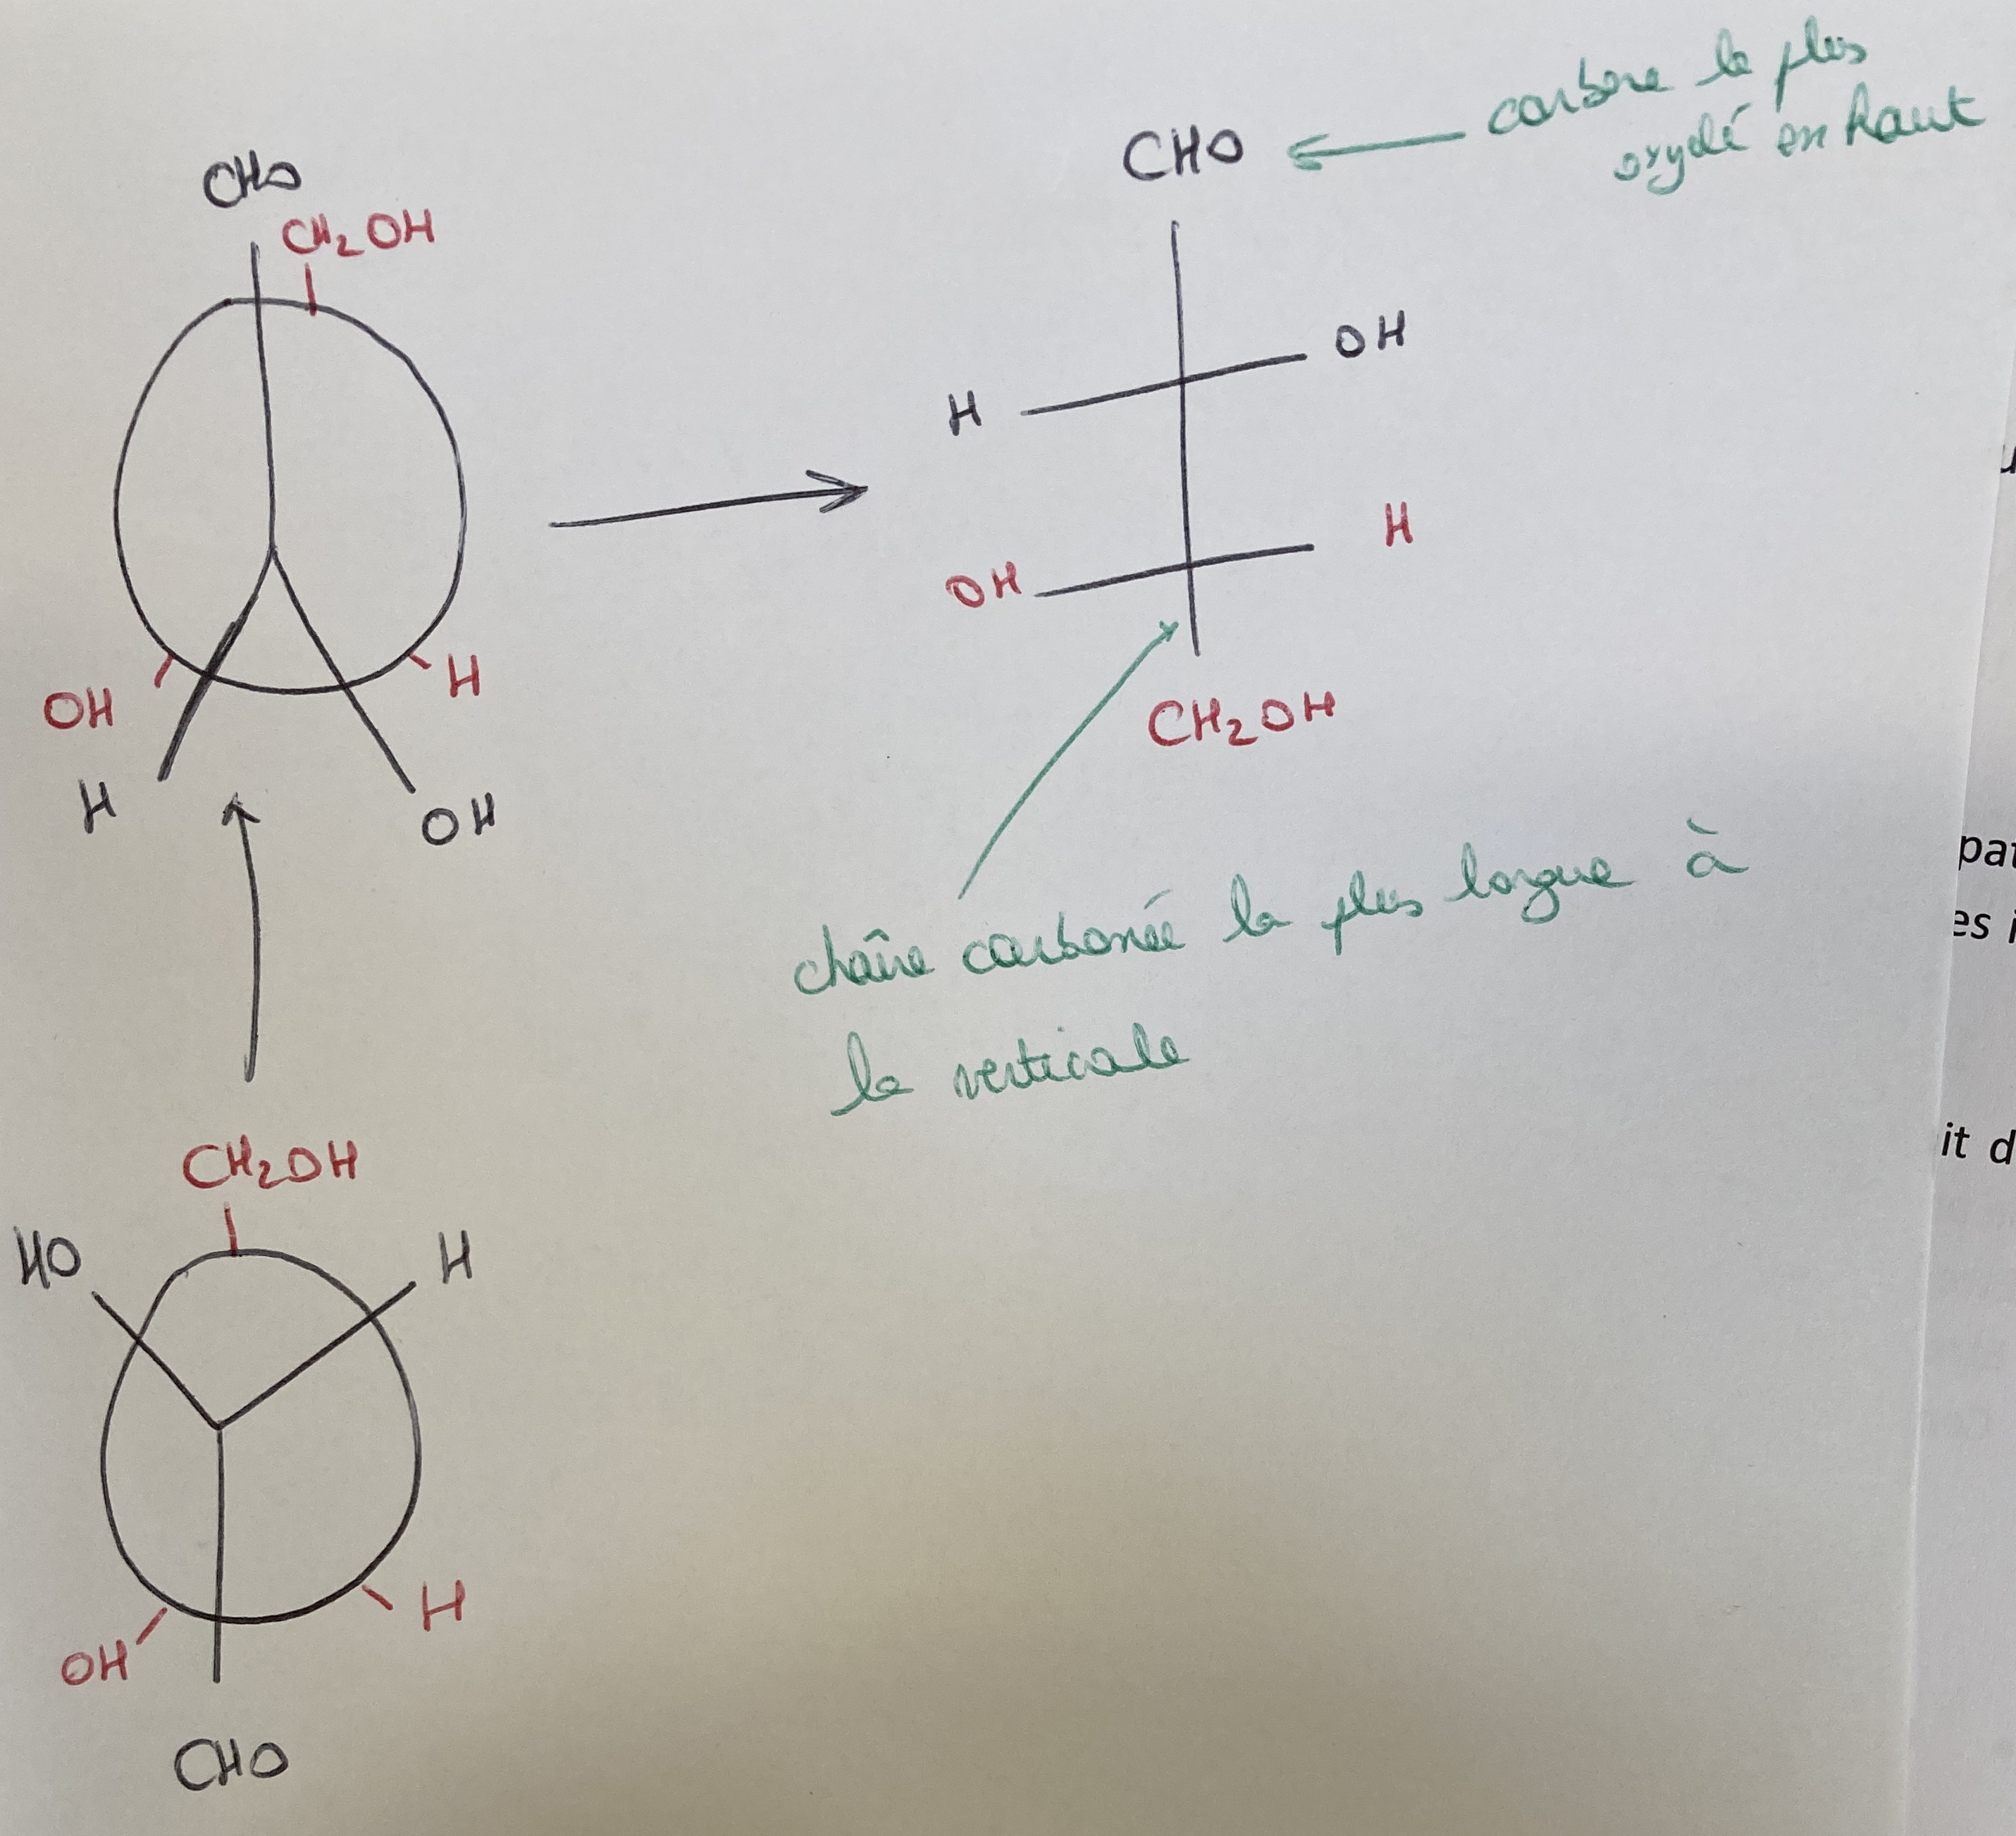 CHO
CH₂OH
OH
H
H
OH
CHO
carbone le plus
oxydé en haut
H
OH
OH
H
CH₂OH
chaîne carbonée la plus longue à
la verticale
CH₂OH
HO
H
OH
H
CHO
pat
es i
it d